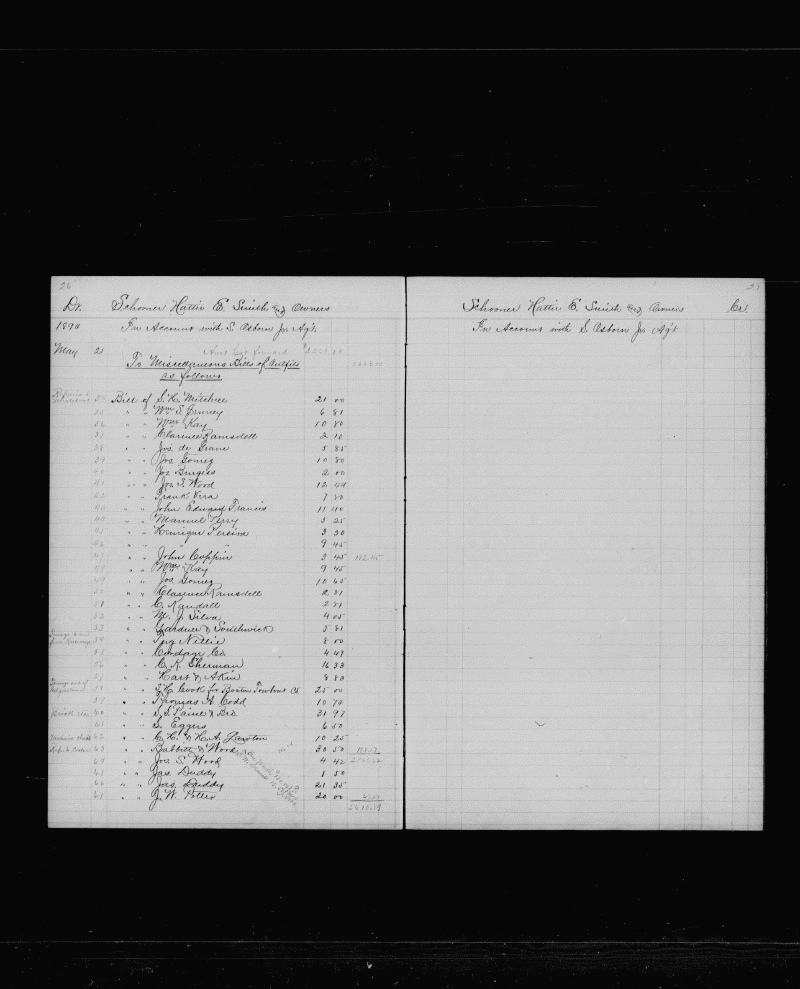 26
Dr. Schooner Hattie E. Smith and Owners
1890 In Account with S. Osborn Jr Agt
May 21 Amt bot forward
To Miscellaneous Bills of Outfits
as follows
Bill of S. H. Mitchell 21 00
35 " " Wm S. 6 81
36 " " Wm Kay 10 80
37 " " Clarence Ramsdell 2 10
38 " " Jos. de 5 85
39 " " Jos. Gomez 10 80
" " Jos Burgess 2 00
41 " " Jos. S. Wood 12 44
42 " " Frank Vera 7 80
" " John Edward Francis 11 40
44 " " Manuel Perry 3 25
45 " " Henrique Pereira 3 30
46 " " " " 9 45
47 " " John Coffin 3 45
" " Wm Kay 9 45
49 " " Jos Gomez 10 65
" " Clarence Ramsdell 2 81
51 " " C. Randall 2 81
52 " " M. J. Silva 4 05
53 " " Gardner & Southwick 5 81
54 " " Tug Nellie 8 00
55 " " Cordage Co. 4 47
56 " " C. R. Sherman 16 33
57 " " Hart & Akin 8 80
58 " " Cook for Boston Towboat Co 25 00
59 " " Thomas A. Codd 10 74
60 " " S. S. Paine & Bro 31 97
61 " " S. Eggers 6 50
62 " " C. H. & H. A. 10 25
63 " " Babbitt & Wood 30 50
64 " " Jos S. Wood 4 42
65 " " Jas Duddy 1 50
66 " " Jas. Duddy 21 35
67 " " J. W. Potter 20 00
Schooner Hattie E. Smith and Owners Cr.
In Account with S. Osborn Jr Agt